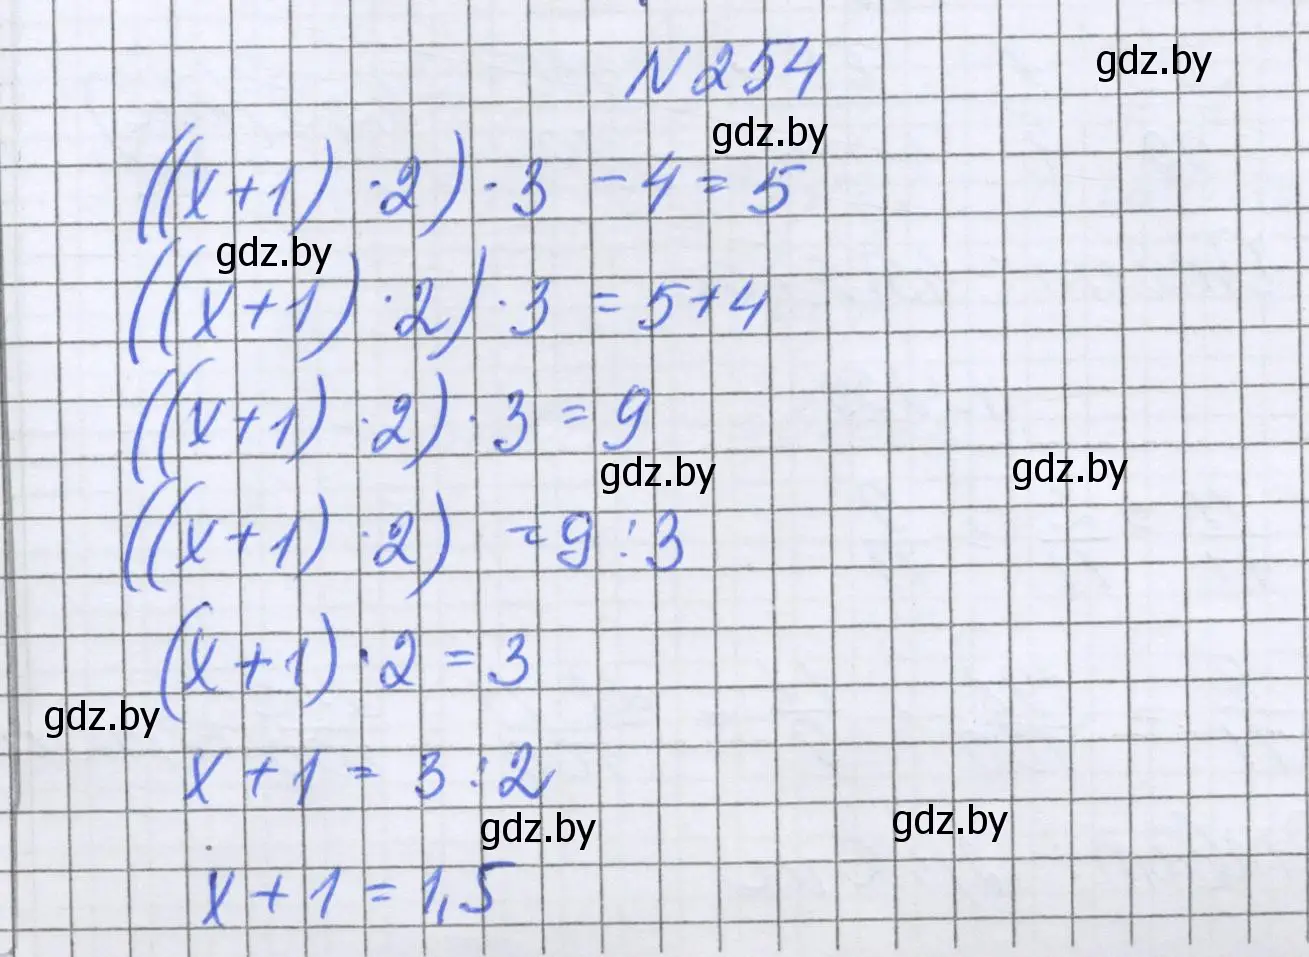 N 254
gdz.by
gdz.by
((x+1) · 2) · 3 - 4 = 5
gdz.by
((x+1) · 2) · 3 = 5+4
((x+1) · 2) · 3 = 9
gdz.by
gdz.by
((x+1) · 2) = 9 : 3
(x+1) · 2 = 3
gdz.by
x + 1 = 3 : 2
gdz.by
gdz.by
x + 1 = 1,5